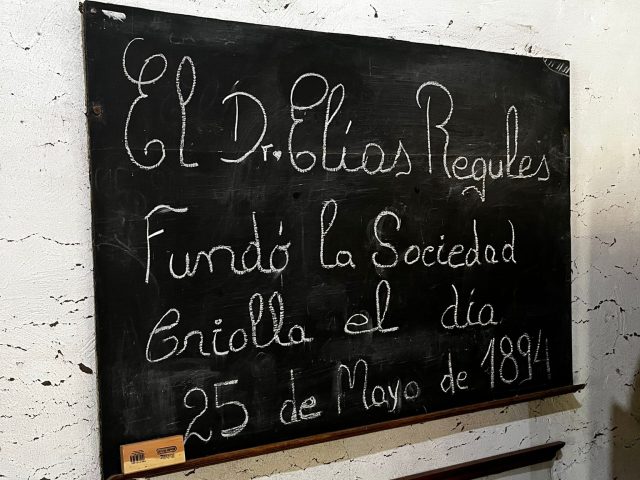 El Dr. Elías Regules
Fundó la Sociedad
Criolla el día
25 de Mayo de 1894